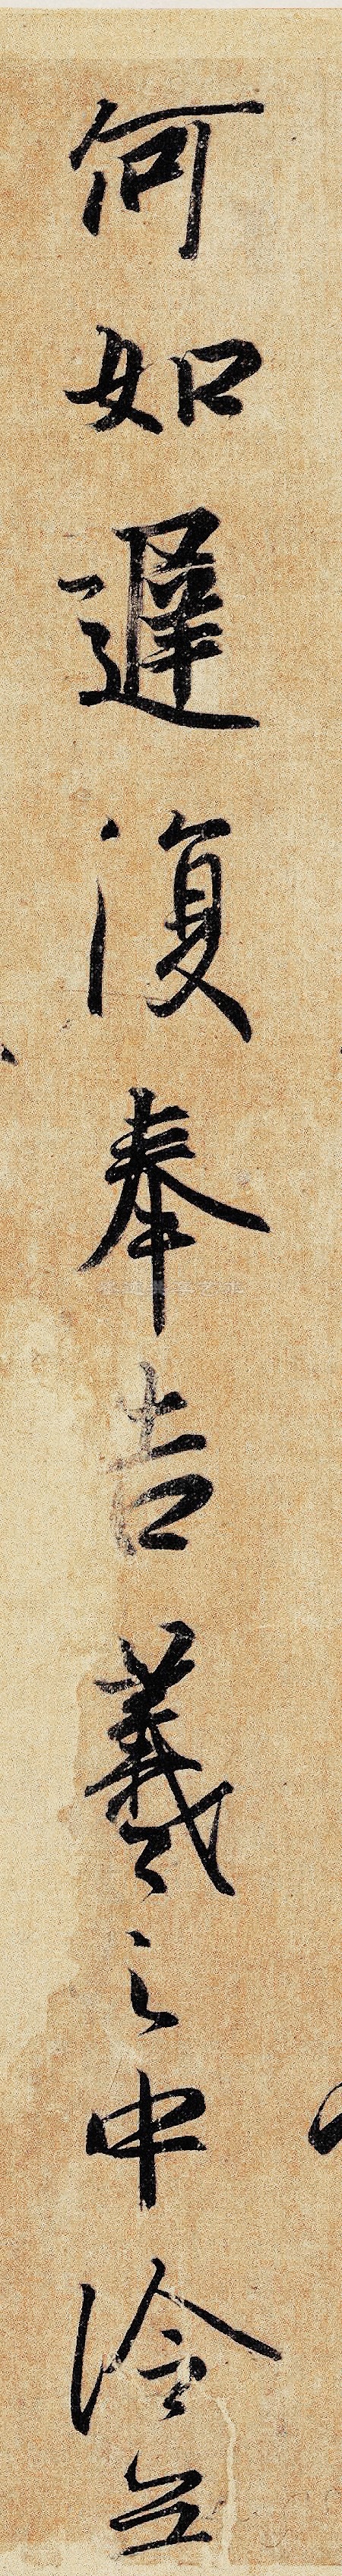 何如遲復奉告羲之中冷無